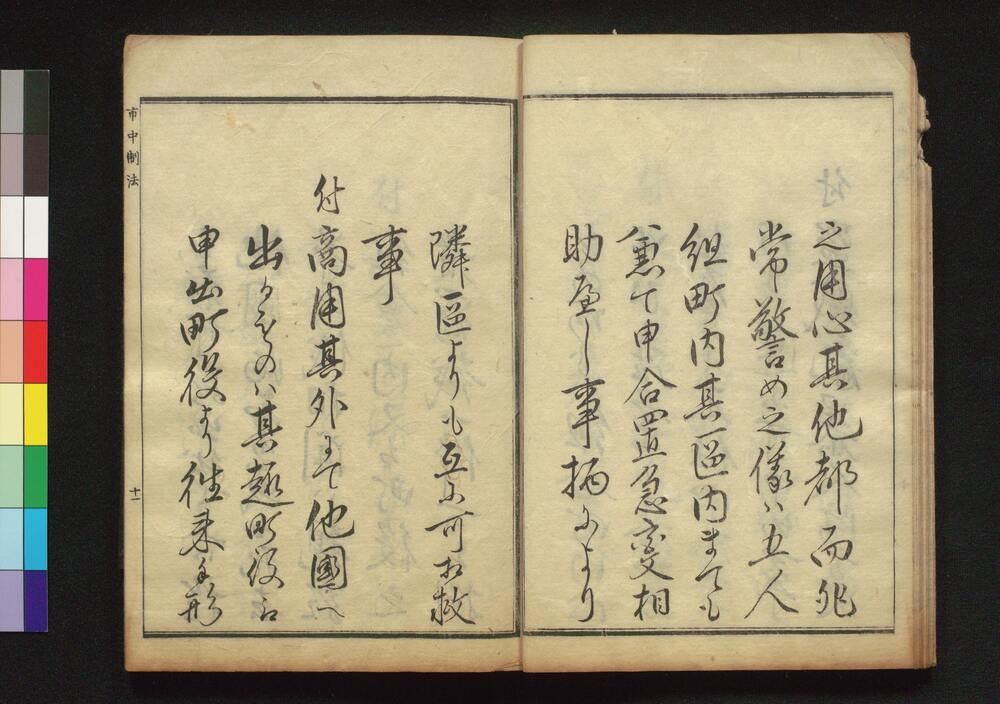 之用心其他都而非
常警め之儀ハ五人
組町内其区内まても
兼て申合置急変相
助へし事柄により
隣区よりも互に可相救
事
付商用其外にて他國へ
出るものハ其趣町役江
申出町役より往来手形
市中制法
十一